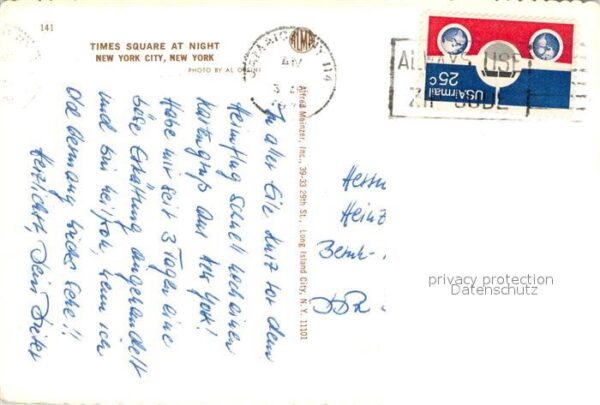 141
TIMES SQUARE AT NIGHT
NEW YORK CITY, NEW YORK
PHOTO BY AL
ALMPY
Alfred Mainzer, Inc., 39-33 29th St., Long Island City, N. Y. 11101
JAMAICA NY 114
AM
ALWAYS USE
ZIP CODE
US Airmail
25c
In aller Eile kurz vor dem
Heimflug schnell noch einen
Kartengruß aus New York!
Habe mir seit 3 Tagen eine
böse Erkältung angehandelt
und bin heilfroh, wenn ich
Old Germany wieder sehe!!
Herzlichst, Dein Dieter
Herrn
Heinz
Bernh-
DDR
privacy protection
Datenschutz